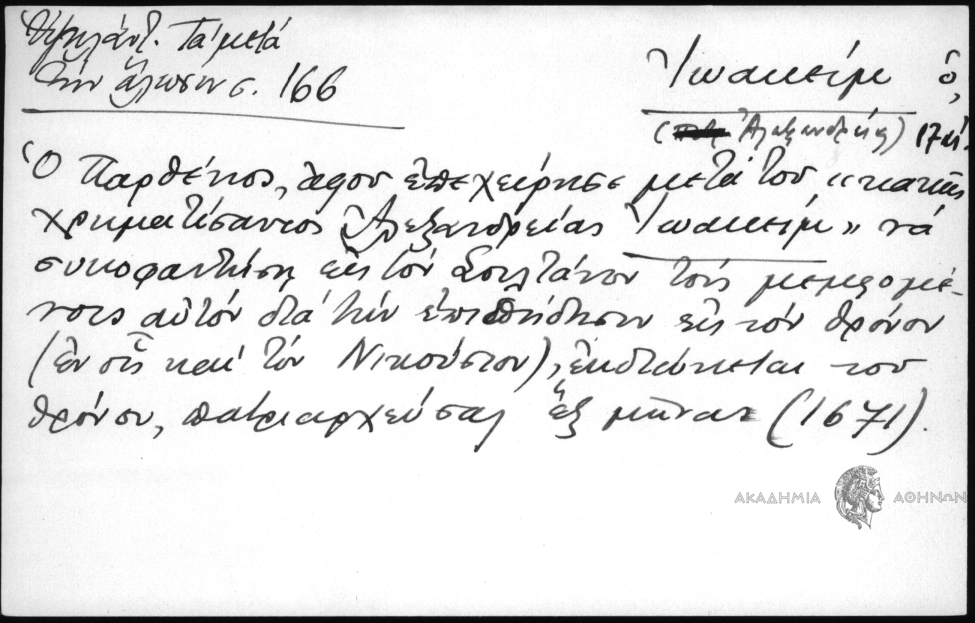 Ὑψηλάντ. Τά μετά
τήν ἅλωσιν σ. 166
Ἰωακείμ ὁ,
(Ἀλεξανδρείας) 17 αἰ.
Ὁ Παρθένιος, ἀφοῦ ἐπεχείρησε μετά τοῦ «κακῶς
χρηματίσαντος Ἀλεξανδρείας Ἰωακείμ» νά
συκοφαντήσῃ εἰς τόν Σουλτάνον τούς μεμφομέ-
νους αὐτόν διά τήν ἐπιπήδησιν εἰς τόν θρόνον
(ἐν οἷς καί τόν Νικούσιον), ἐκδιώκεται τοῦ
θρόνου, πατριαρχεύσας ἕξ μῆνας (1671).
ΑΚΑΔΗΜΙΑ ΑΘΗΝΩΝ